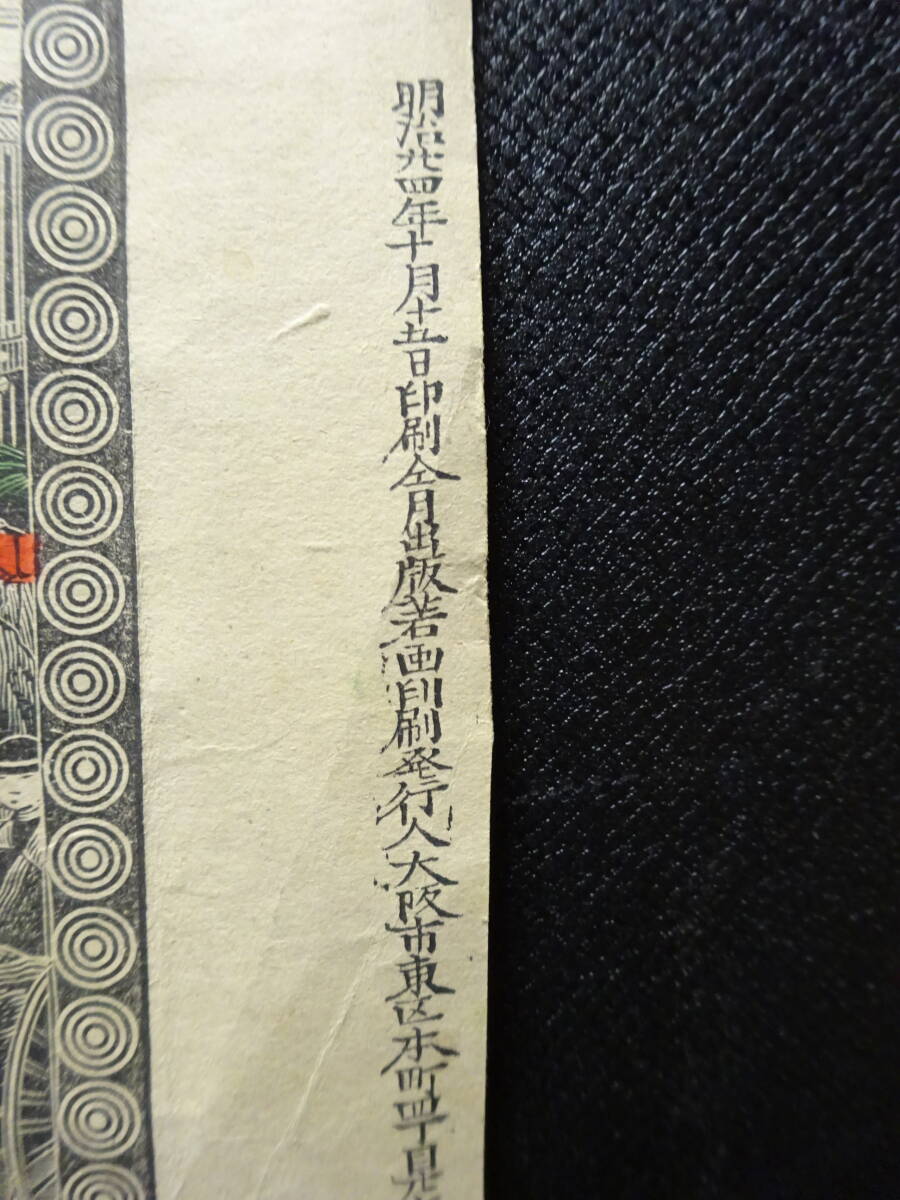 明治廿四年十月十五日印刷仝月出版著画印刷発行人大阪市東区本町四丁目